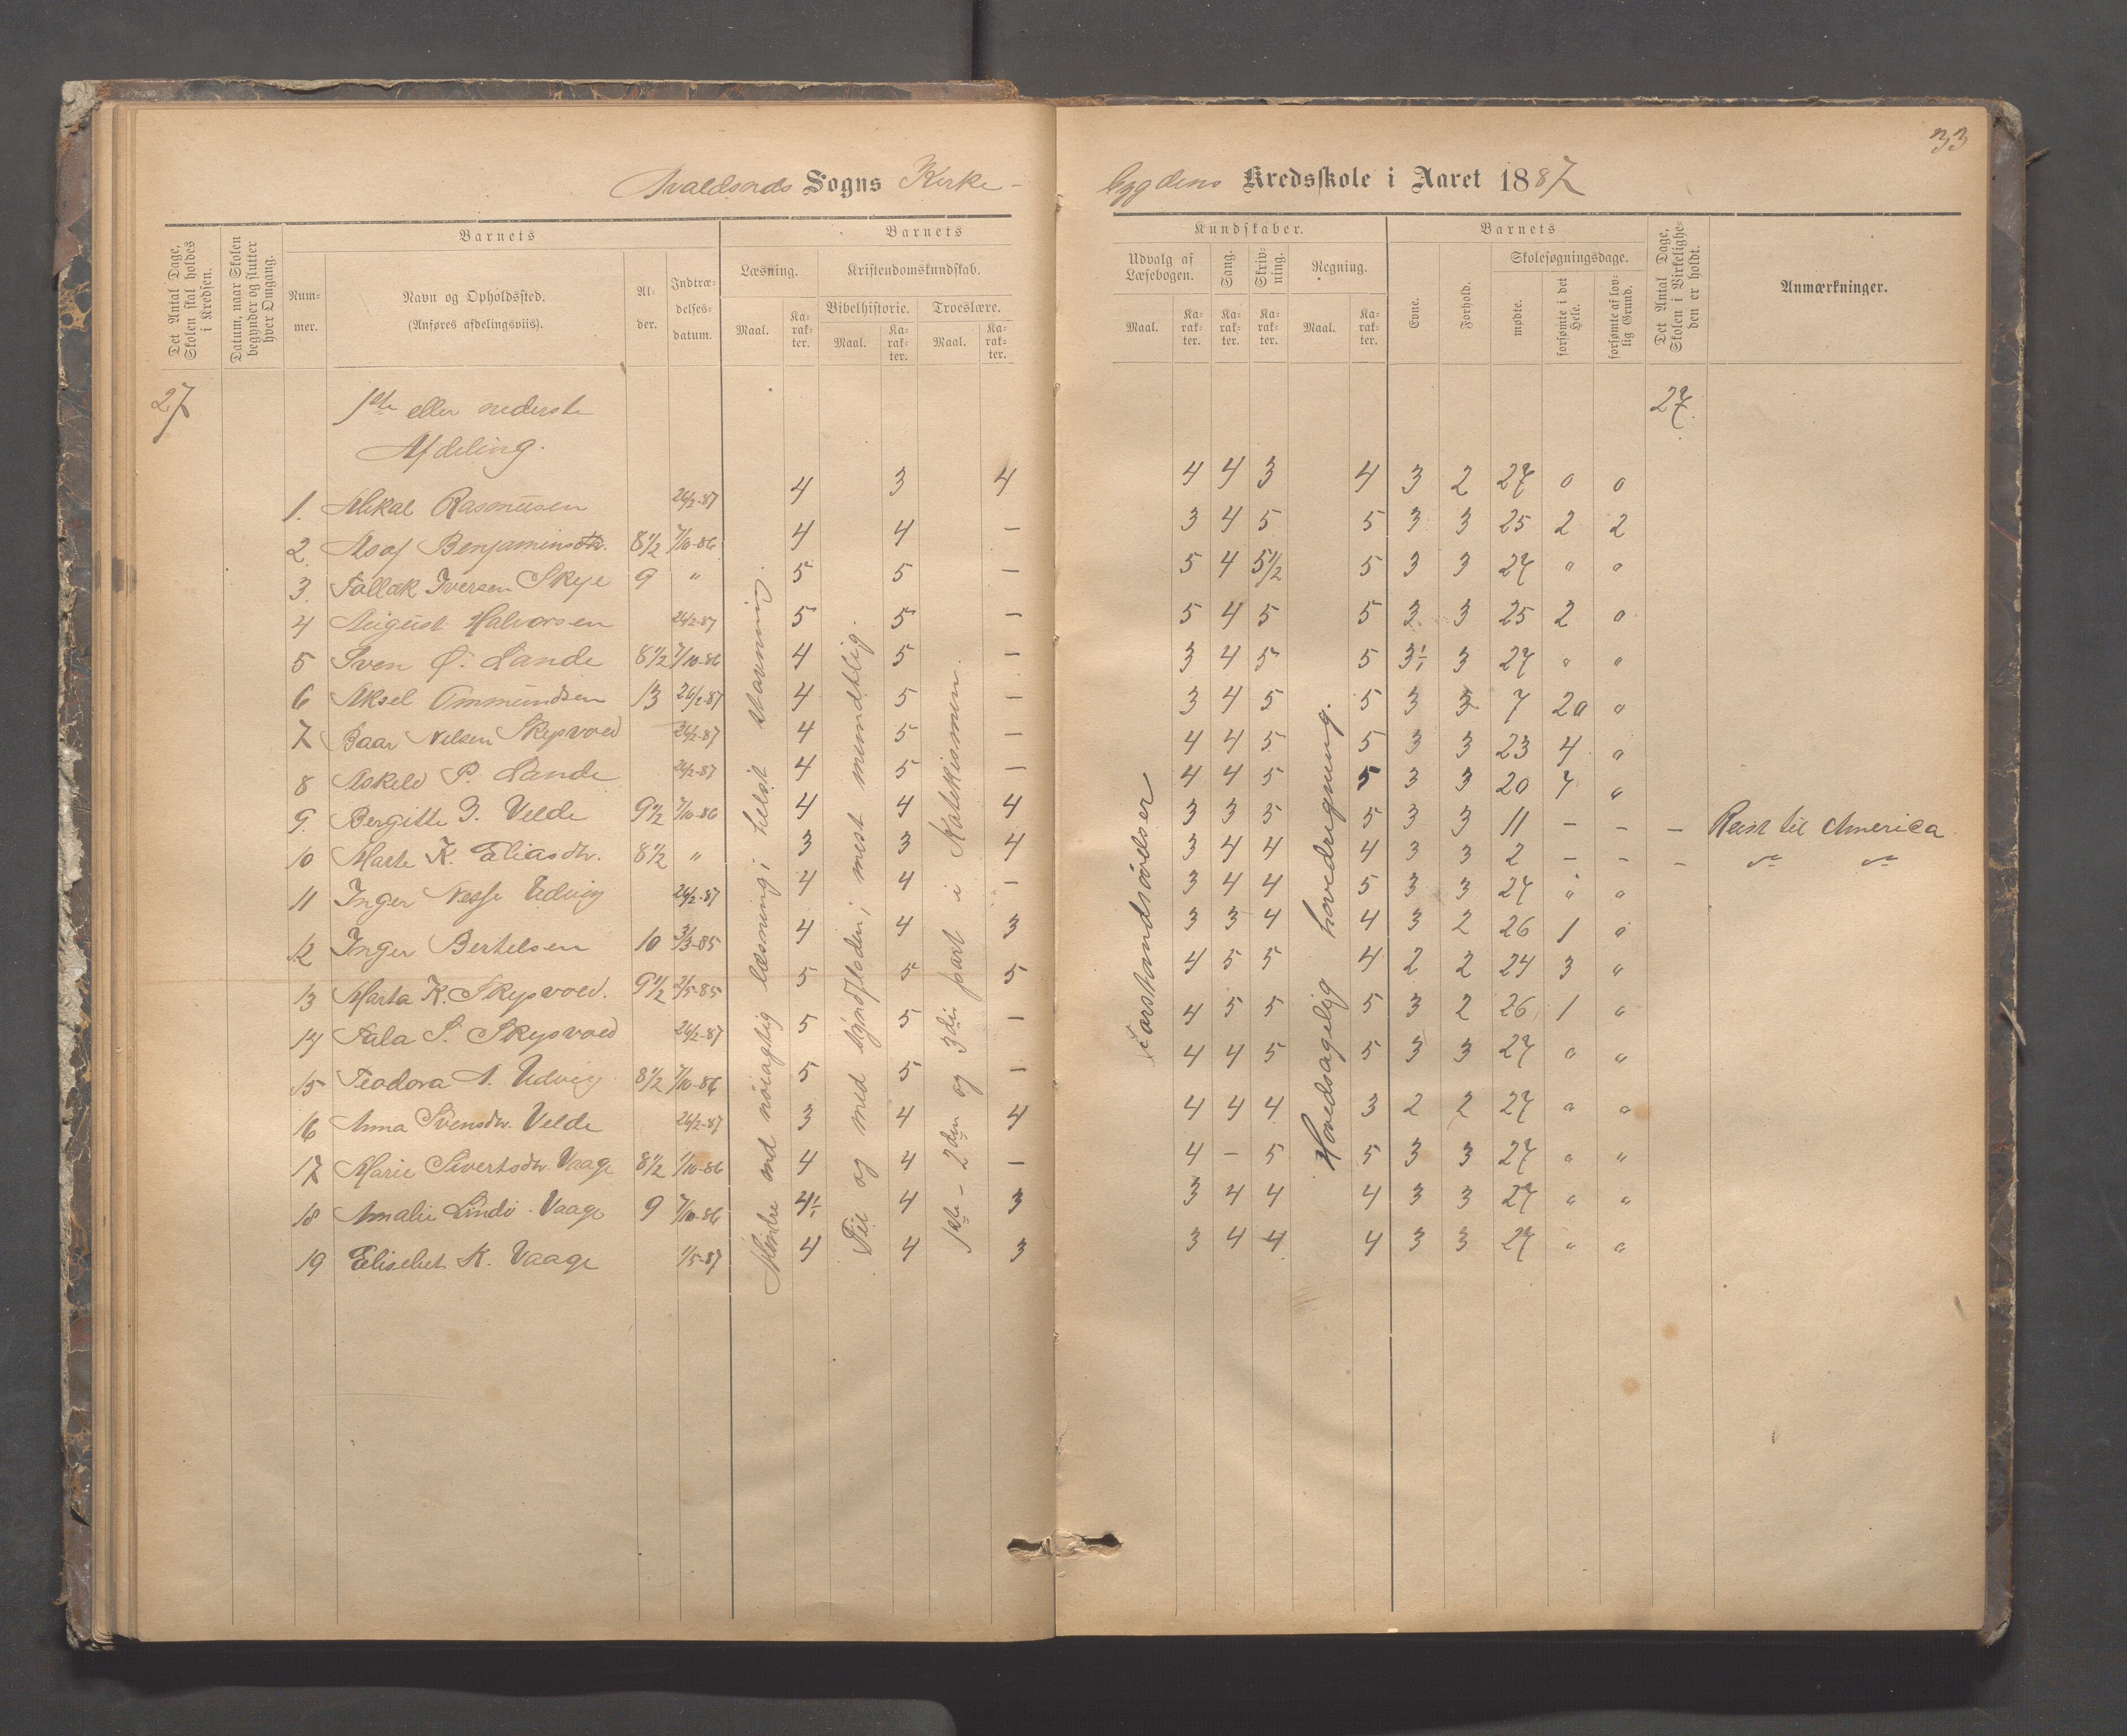 33
Avaldsnes Sogns Kirke-
bygdens Kredsskole i Aaret 1887
Det Antal Dage, Skolen skal holdes i Kredsen.
Datum, naar Skolen begynder og slutter hver Omgang.
Barnets
Nummer.
Navn og Opholdssted.
(Anføres afdelingsviis).
Alder.
Indtrædelsesdatum.
Barnets
Læsning.
Maal. Karakter.
Kristendomskundskab.
Bibelhistorie. Troeslære.
Maal. Karakter. Maal. Karakter.
Kundskaber.
Udvalg af Læsebogen.
Maal. Karakter.
Sang.
Karakter.
Skrivning.
Karakter.
Regning.
Maal. Karakter.
Barnets
Evne.
Forhold.
Skolesøgningsdage.
mødte.
forsømte i det Hele.
forsømte af lovlig Grund.
Det Antal Dage, Skolen i Virkeligheden er holdt.
Anmærkninger.
27 1ste eller nederste 27.
Afdeling.
1. Mikal Rasmusen 26/2-87 4 3 4 4 4 3 4 3 2 27 0 0
2 Asof Benjaminsdtr. 8 1/2 7/10-86 4 4 — 3 4 5 5 3 3 25 2 2
3. Tallak Iversen Skye 9 " 5 5 — 5 4 5 1/2 5 3 3 27 " "
4 August Halvorsen 26/2-87 5 5 — 5 4 5 5 3 3 25 2 0
5 Sven Ø. Lande 8 1/2 7/10-86 4 5 — 3 4 5 5 3 3 27 " "
6 Aksel Ommundsen 13 26/2-87 4 5 — 3 4 5 5 3 3 7 20 "
7 Baar Nelsen Skysvold 26/2-87 4 5 — 4 4 5 5 3 3 23 4 "
8 Askeld P. Lande 26/2-87 4 5 — 4 4 5 5 3 3 20 7 "
9. Bergitte I. Velde 9 1/2 7/10-86 4 4 4 3 3 5 5 3 3 11 — — — Reist til America
10 Marte K. Eliasdtr. 8 1/2 " 3 3 4 3 4 4 4 3 3 2 — — — " "
11 Inger Nesse Udvig 26/2-87 4 4 — 3 4 4 5 3 3 27 " "
12 Inger Bertelsen 10 3/3-85 4 4 3 3 3 4 4 3 2 26 1 "
13 Marta K. Skysvold. 9 1/2 2/5-85 5 5 5 4 5 5 4 2 2 24 3 "
14 Tala S. Skysvold 26/2-87 5 5 — 4 5 5 5 3 2 26 1 "
15 Teodora A. Udvig 8 1/2 7/10-86 5 5 — 4 4 5 5 3 3 27 " "
16 Anna Svensdtr. Velde 26/2-87 3 4 4 4 4 4 3 2 2 27 " "
17 Marie Sivertsdtr. Vaage 8 1/2 1/10-86 4 4 — 4 — 5 5 3 3 27 " "
18 Amalie Lindø Vaage 9 7/10-86 4 4 3 3 4 4 4 3 3 27 " "
19 Elisebet K. Vaage 1/5-87 4 4 3 3 4 4 4 3 3 27 " "
Mindre end nøiagtig læsning; helst stavning.
Til og med syndfloden; mest mundtlig.
1ste - 2den og 3die part i Katekismen.
Forstandsøvelser
Hovedsagelig hovedregning.